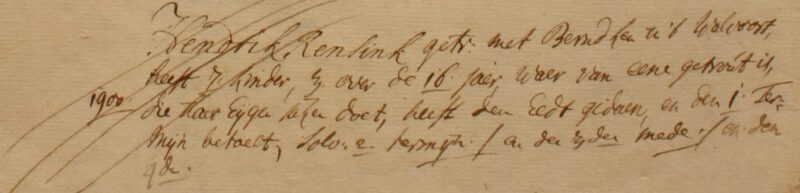 Hendrik Rensink getr. met Berndken in 't Walvoort,
heeft 7 kinder, 3 over de 16 jaer, waer van eene getrout is,
1900. die haer Eygen doet, heeft den Eedt gedaen, en den 1. Ter-
mijn betaelt, Solv: 2 termijn. / en den 3den mede. / en den
4den.